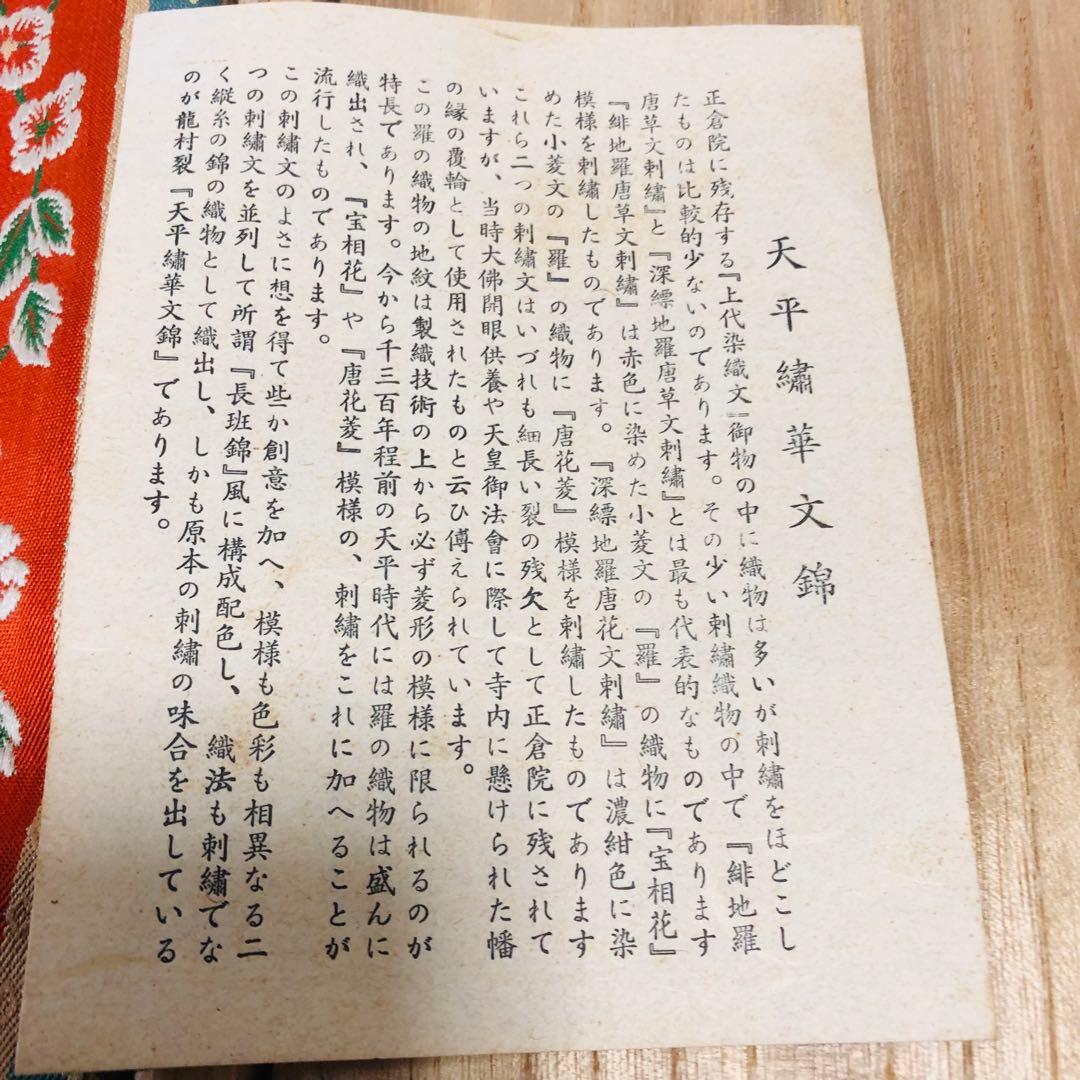 天平繡華文錦
正倉院に残存する『上代染織文』御物の中に織物は多いが刺繡をほどこし
たものは比較的少ないのであります。その少い刺繡織物の中で『緋地羅
唐草文刺繡』と『深縹地羅唐草文刺繡』とは最も代表的なものであります
『緋地羅唐草文刺繡』は赤色に染めた小菱文の『羅』の織物に『宝相花』
模様を刺繡したものであります。『深縹地羅唐花文刺繡』は濃紺色に染
めた小菱文の『羅』の織物に『唐花菱』模様を刺繡したものであります
これら二つの刺繡文はいづれも細長い裂の残欠として正倉院に残されて
いますが、当時大佛開眼供養や天皇御法會に際して寺内に懸けられた幡
の縁の覆輪として使用されたものと云ひ傳えられています。
この羅の織物の地紋は製織技術の上から必ず菱形の模様に限られるのが
特長であります。今から千三百年程前の天平時代には羅の織物は盛んに
織出され、『宝相花』や『唐花菱』模様の、刺繡をこれに加へることが
流行したものであります。
この刺繡文のよさに想を得て些か創意を加へ、模様も色彩も相異なる二
つの刺繡文を並列して所謂『長班錦』風に構成配色し、織法も刺繡でな
く縦糸の錦の織物として織出し、しかも原本の刺繡の味合を出している
のが龍村裂『天平繡華文錦』であります。